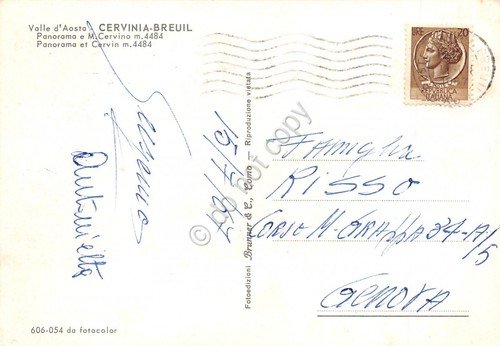 Valle d'Aosta - CERVINIA-BREUIL
Panorama e M. Cervino m. 4484
Panorama et Cervin m. 4484
LIRE 20
Antonietta
Fotoedizioni Brunner & C., Como - Riproduzione vietata
do not copy
FAMIGLIA
RISSO
CORSO M. GRAPPA 34-A/
5
GENOVA
606-054 da fotocolor